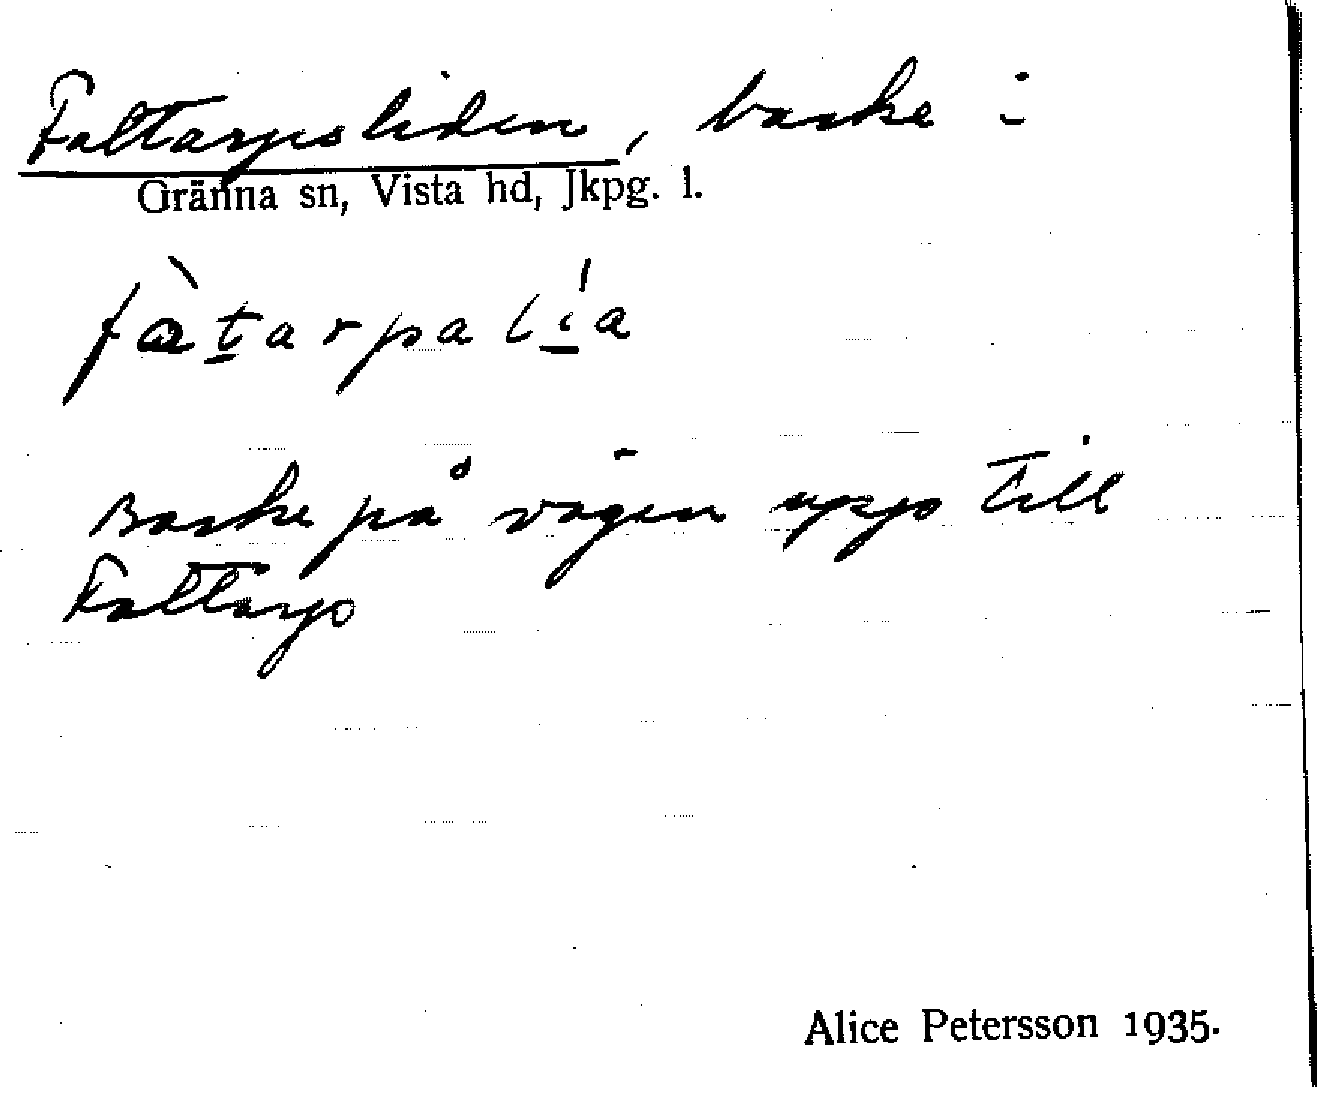 Faltarpsliden, backe i
Gränna sn, Vista hd, Jkpg. l.
fàtarpalía
Backe på vägen upp till
Faltarp
Alice Petersson 1935.